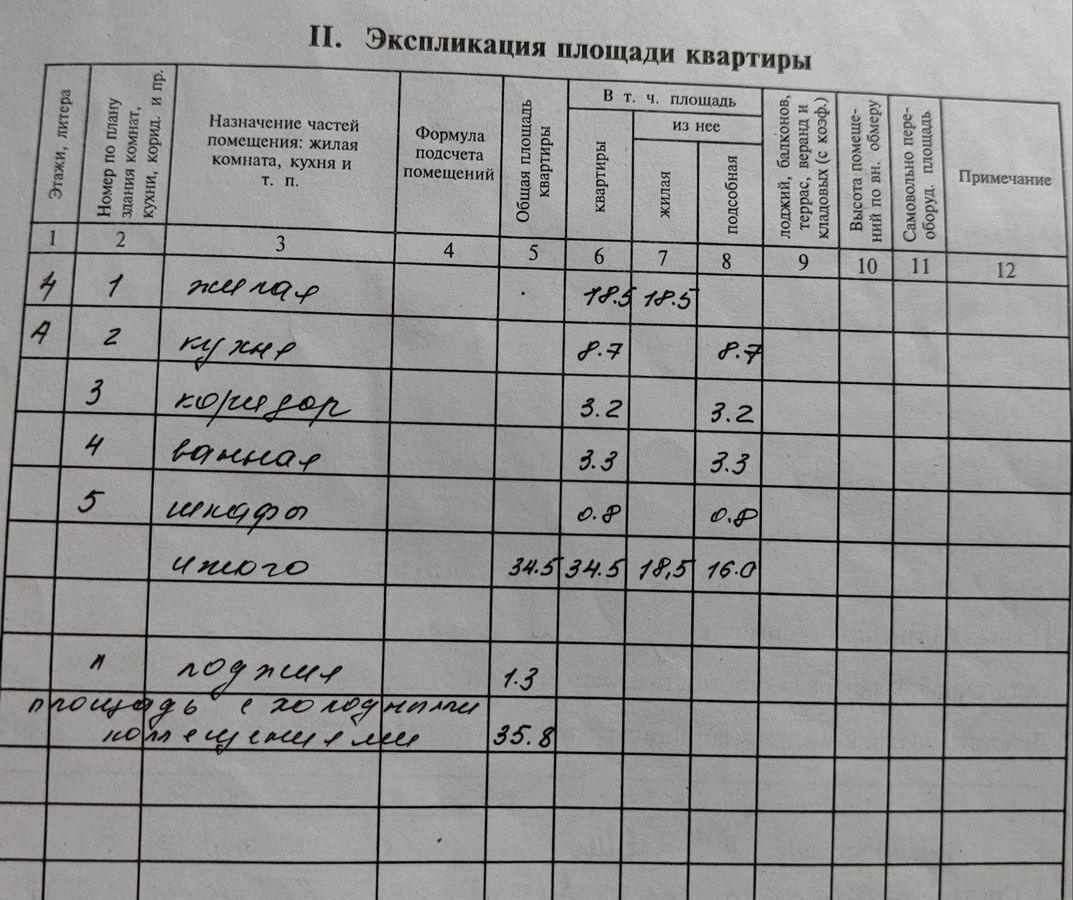 II. Экспликация площади квартиры
Этажи, литера
Номер по плану здания комнат, кухни, корид. и пр.
Назначение частей помещения: жилая комната, кухня и т. п.
Формула подсчета помещений
Общая площадь квартиры
В т. ч. площадь
из нее
квартиры
жилая
подсобная
лоджий, балконов, террас, веранд и кладовых (с коэф.)
Высота помеще-ний по вн. обмеру
Самовольно пере-оборуд. площадь
Примечание
1 2 3 4 5 6 7 8 9 10 11 12
4 1 жилая 18.5 18.5
А 2 кухня 8.7 8.7
3 коридор 3.2 3.2
4 ванная 3.3 3.3
5 шкафы 0.8 0.8
итого 34.5 34.5 18,5 16.0
л лоджия 1.3
площадь с холодными
помещениями 35.8